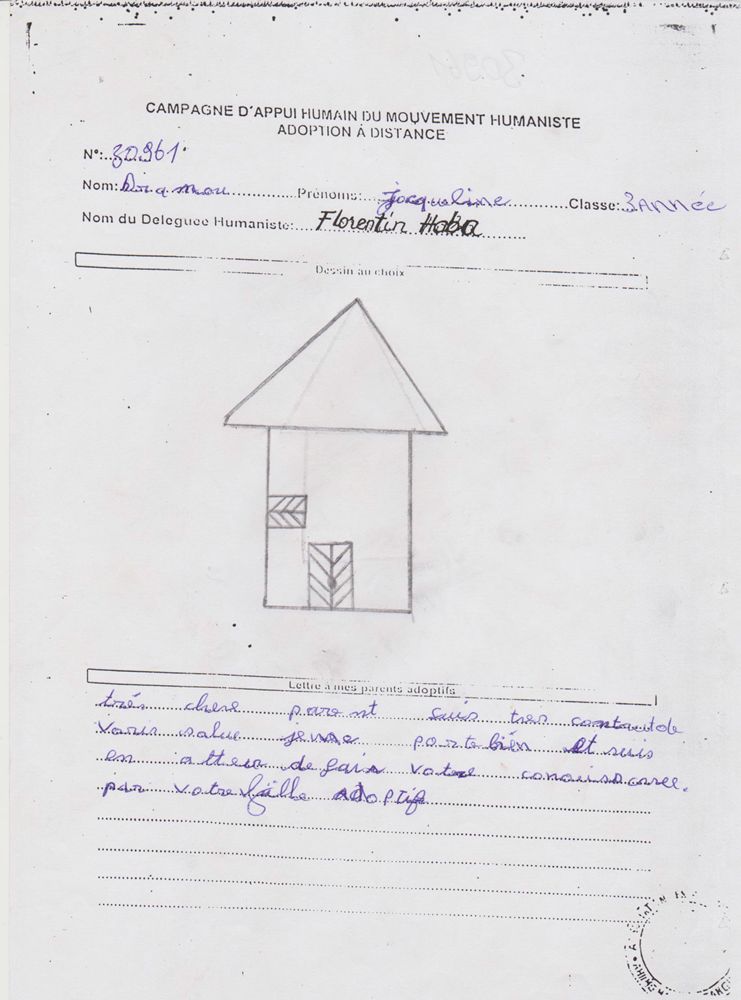 CAMPAGNE D'APPUI HUMAIN DU MOUVEMENT HUMANISTE
ADOPTION À DISTANCE
N°: 30961
Nom: Prénoms: Jacqueline Classe: 3ANNÉE
Nom du Deleguee Humaniste: Florentin Haba
Dessin au choix
Lettre à mes parents adoptifs
très chere parent suis tres contant de
vous salue jeme porte bien et suis
en atten de fair votre
par votre fille adoptif